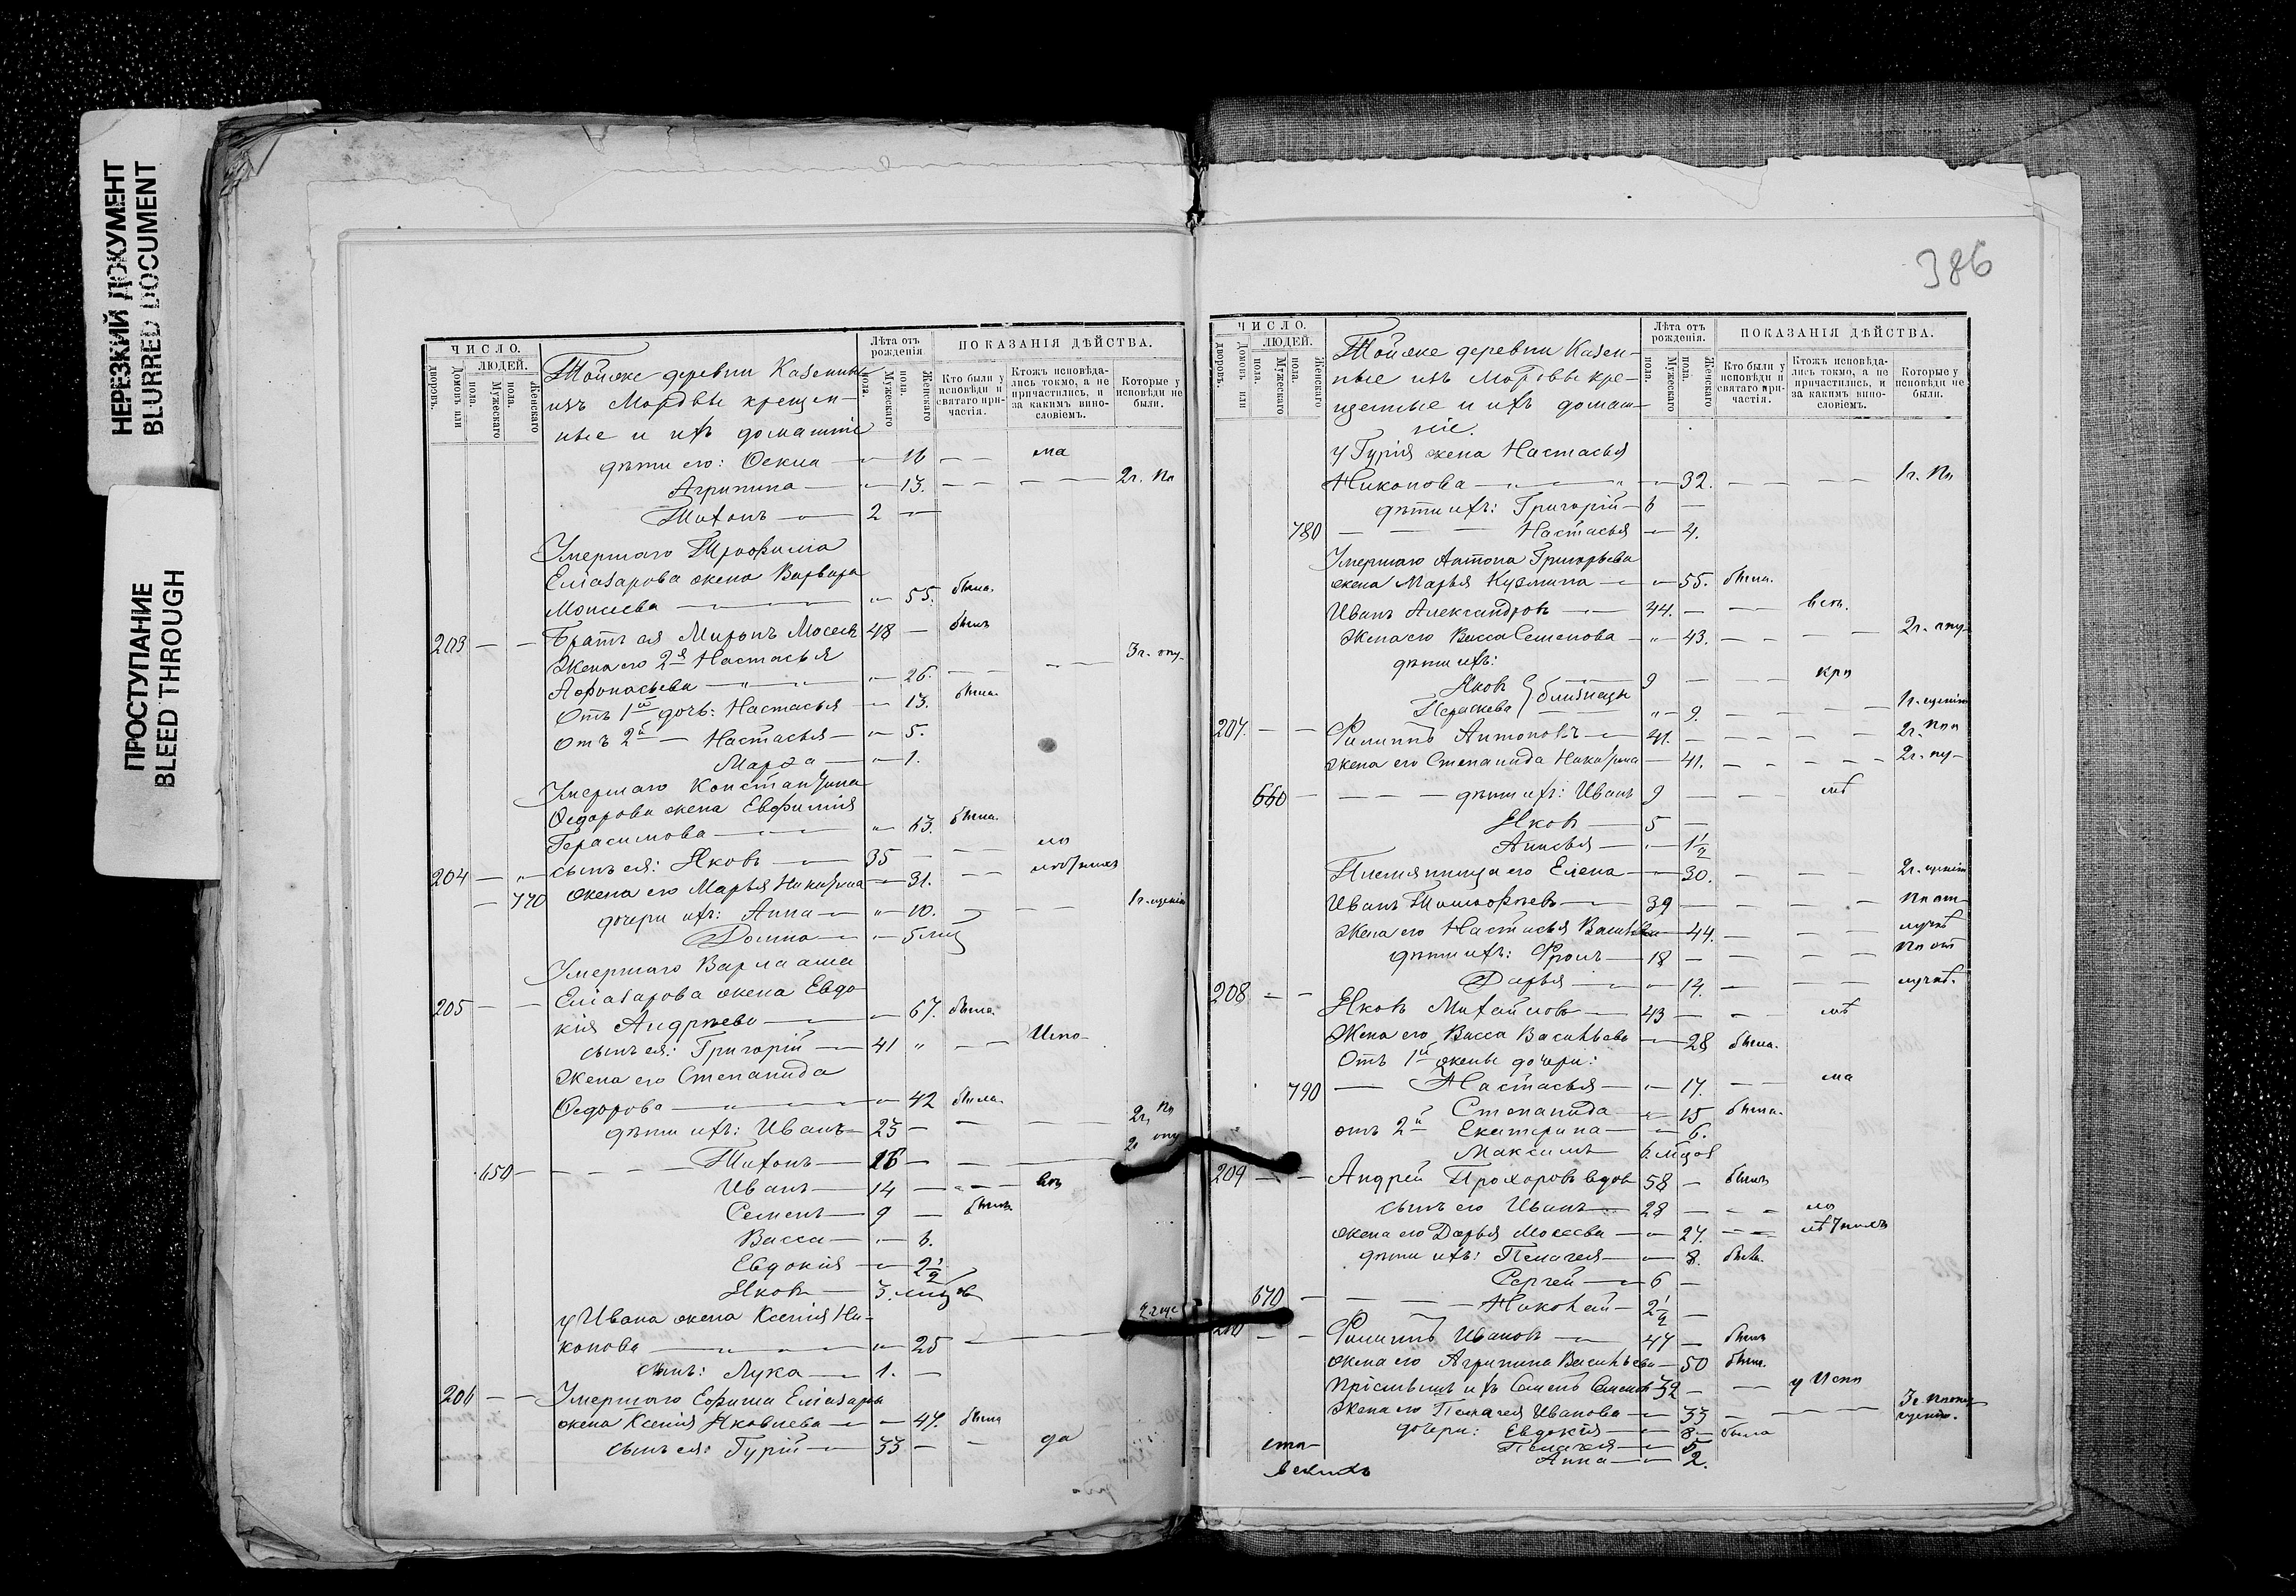 НЕРЕЗКИЙ ДОКУМЕНТ
BLURRED DOCUMENT
ПРОСТУПАНИЕ
BLEED THROUGH
ЧИСЛО.
ЛЮДЕЙ.
Домовъ или дворовъ.
Мужескаго пола.
Женскаго пола.
Тойже деревни Казенные
изъ Мордвы крещен-
ные и ихъ домашніе
Лѣта отъ рожденія
Мужескаго пола.
Женскаго пола.
ПОКАЗАНІЯ ДѢЙСТВА.
Кто были у исповѣди и святаго причастія.
Ктожъ исповѣдались токмо, а не причастились, и за какимъ винословіемъ.
Которые у исповѣди не были.
дѣти его: — 16 — —
Агрипина — 13. — — — — 2г.
Тихонъ — 2 —
Умершаго Трофима
Елиазарова жена Варвара
Моисеева — 55. была.
203 — — Братъ ея Миронъ Мосеевъ 48 — былъ
Жена его 2я Настасья
Афонасьева — 26. — — — 3г.
Отъ 1й дочь: Настасья — 13. была.
отъ 2й — Настасья — 5.
Марѳа — 1.
Умершаго Константина
Ѳедорова жена Евфимія
Герасимова — 63. была.
204 — — сынъ ея: Яковъ — 35 — — —
— 770 жена его Марья Никитина — 31. — —
дочери ихъ: Анна — 10. — — — 1г.
Домна — 5 мц
Умершаго Варлаама
205 — — Елиазарова жена Евдо-
кія Андрѣева — 67. была.
сынъ ея: Григорій — 41 — —
Жена его Степанида
Ѳедорова — 42 была.
дѣти ихъ: Иванъ — 23 — — — 2г.
650 — — — — Тихонъ — 16 — — —
Иванъ — 14 — — —
Семенъ — 9 — былъ
Васса — 6.
Евдокія — 2½
Яковъ — 3. мцов
у Ивана жена Ксенія Ни-
конова — 25 — —
сынъ: Лука — 1. —
206 — — Умершаго Ефима Елиазара
жена Ксенія Яковлева — 47. была
сынъ ея: Гурій — 33 — — да
386
ЧИСЛО.
ЛЮДЕЙ.
Домовъ или дворовъ.
Мужескаго пола.
Женскаго пола.
Тойже деревни Казен-
ные изъ Мордвы кре-
щенные и ихъ домаш-
ніе.
Лѣта отъ рожденія.
Мужескаго пола.
Женскаго пола.
ПОКАЗАНІЯ ДѢЙСТВА.
Кто были у исповѣди и святаго причастія.
Ктожъ исповѣдались токмо, а не причастились, и за какимъ винословіемъ.
Которые у исповѣди не были.
у Гурія жена Настасья
Никонова — 32. — — — — 1г.
дѣти ихъ: Григорій — 6 —
780 — — — Настасья — 4.
Умершаго Антона Григорьева
жена Марья Кузмина — 55. была.
Иванъ Александровъ — 44. — —
Жена его Васса Семенова — 43. — — — — 2г.
дѣти ихъ:
Яковъ } близнецы 9 — —
Параскева — 9. — — — — 1г.
207. — — Филиппъ Антоновъ — 41. — — — — 2г.
жена его Степанида Никитина — 41. — — — — 2г.
660 — — — — дѣти ихъ: Иванъ 9 — —
Яковъ — 5 —
Анисья — 1½
Племянница его Елена — 30. — — 2г.
Иванъ Тимофѣевъ — 39 — — — —
Жена его Настасья Васильева — 44. — — —
дѣти ихъ: Фролъ — 18 — — — —
Дарья — 14. — — —
208 — — Яковъ Михайловъ — 43 — — —
Жена его Васса Васильева — 28 была.
Отъ 1й жены дочери:
790 — Настасья — 17. — —
Степанида — 15 была.
отъ 2й Екатерина — 6.
Максимъ 6. мцов
209 — — Андрей Прохоровъ вдов 58 — былъ
сынъ его Иванъ — 28 — — —
жена его Дарья Мосеева — 27. — —
дѣти ихъ: Пелагея — 8. была.
Сергей — 6 —
670 — — — — Николай — 2½ —
210 — — Филиппъ Ивановъ — 47 — былъ
жена его Агрипина Васильева — 50 была.
Пріемышъ ихъ Семенъ 32 — —
Жена его Пелагея Иванова — 33 — — — 3г.
дочери: Евдокія — 8 — была
Пелагея — 5
Анна — 2.